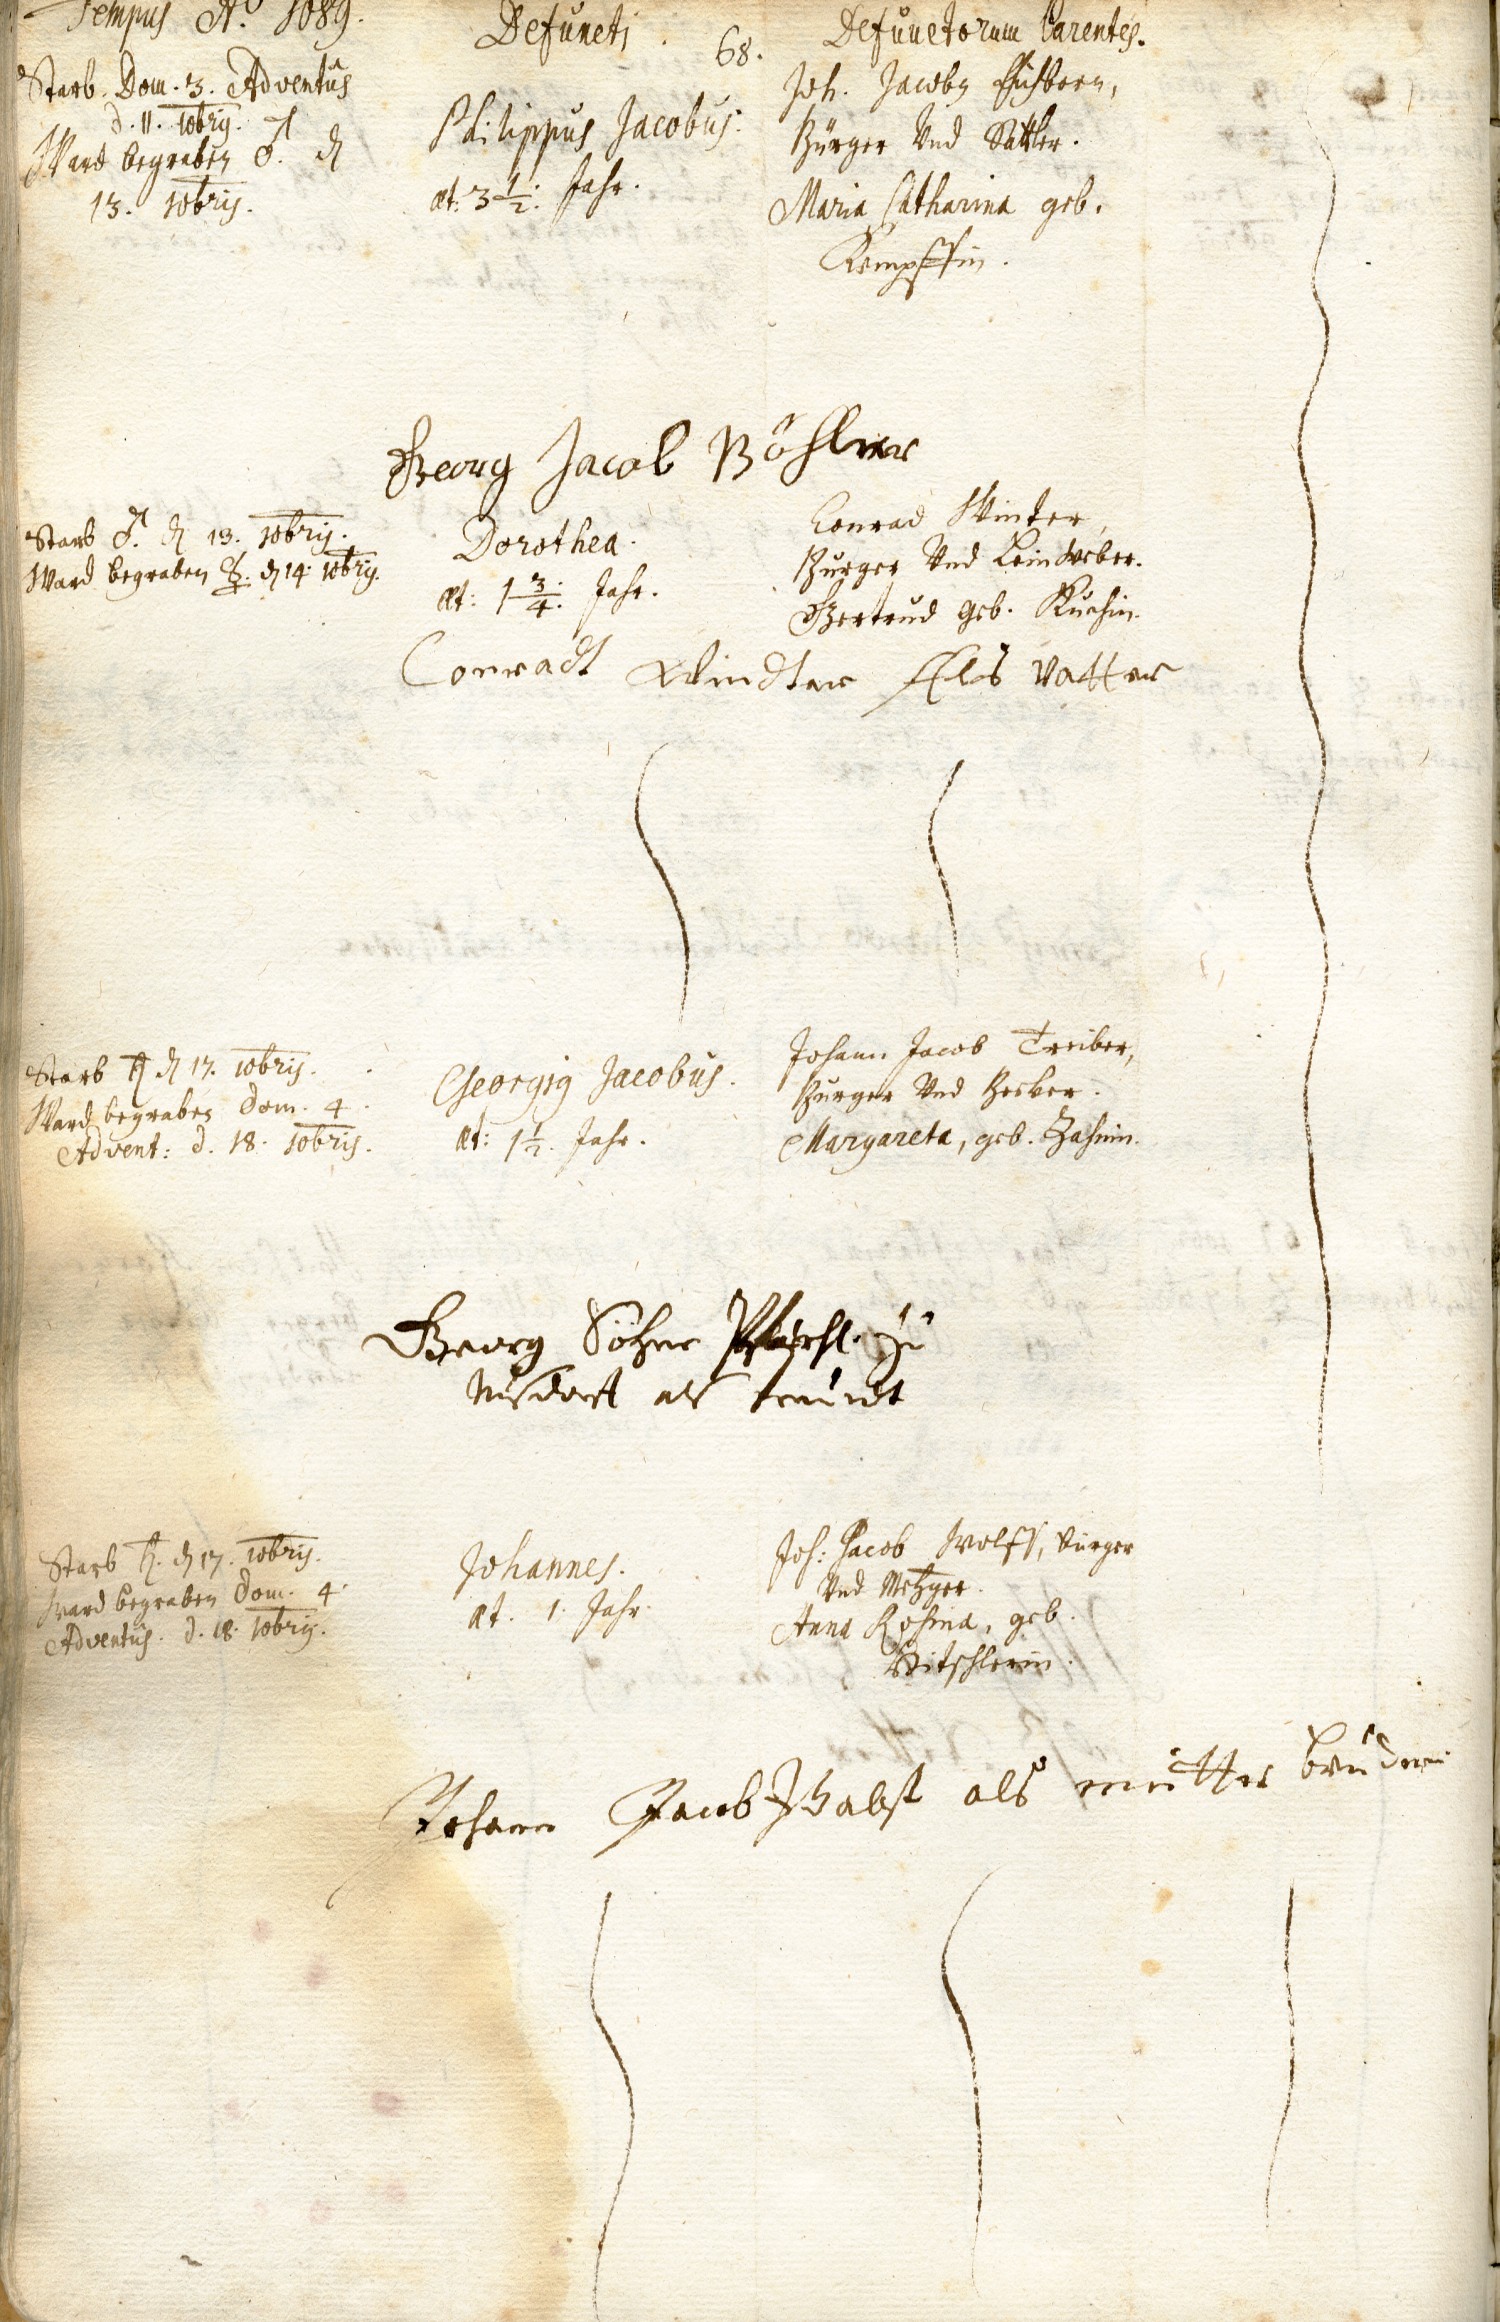 Tempus Aº 1689.
Defuncti.
68.
Defunctorum Parentes.
Starb. Dom. 3. Adventus
d. 11. 10bris.
Ward begraben ♂. d
13. 10bris.
Philippus Jacobus.
æt: 3 1/2: Jahr.
Joh. Jacobus Eichborn,
Bürger Und Sattler.
Maria Catharina geb.
Kempffin.
Georg Jacob Böhlner
Starb ♂. d 13. 10bris.
Ward begraben ☿. d 14. 10bris.
Dorothea.
æt: 1 3/4: Jahr.
Conrad Winter,
Burger Und Leindweber.
Gertrud geb. Kuchin.
Conradt Windter Als Vatter
Starb ♄ d 17. 10bris.
Ward begraben Dom. 4.
Advent: d. 18. 10bris.
Georgius Jacobus.
æt: 1 1/2. Jahr.
Johann Jacob Treiber,
Burger Und Becker.
Margareta, geb. Zahnin.
Georg Söhner zu
Nusdorf als freundt
Starb ♄. d 17. 10bris.
Ward begraben Dom. 4.
Adventus. d. 18. 10bris.
Johannes.
æt. 1. Jahr.
Joh: Jacob Wolff, burger
Und Metzger.
Anna Rosina, geb.
Johann Jacob Babst als mutter bruder